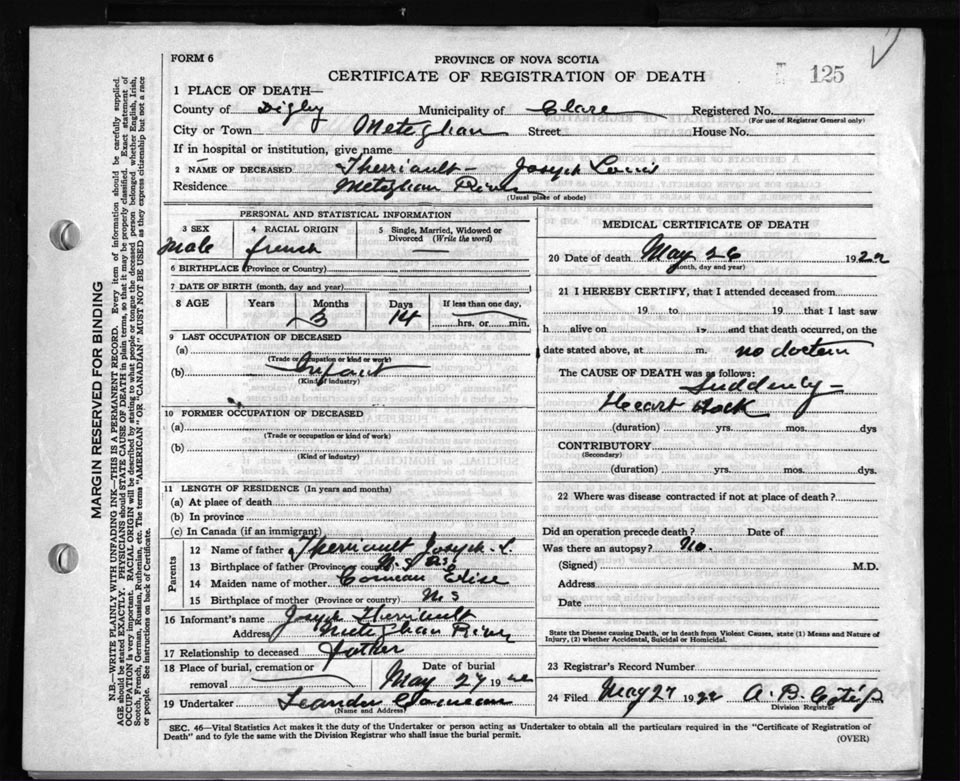 FORM 6
PROVINCE OF NOVA SCOTIA
CERTIFICATE OF REGISTRATION OF DEATH
125
1 PLACE OF DEATH—
County of Digby Municipality of Clare Registered No.
(For use of Registrar General only)
City or Town Meteghan Street House No.
If in hospital or institution, give name
2 NAME OF DECEASED Therriault - Joseph Louis
Residence Meteghan River
(Usual place of abode)
PERSONAL AND STATISTICAL INFORMATION
3 SEX 4 RACIAL ORIGIN 5 Single, Married, Widowed or Divorced (Write the word)
Male french —
6 BIRTHPLACE (Province or Country)
7 DATE OF BIRTH (month, day and year)
8 AGE Years Months Days If less than one day,
3 14 hrs. or min.
9 LAST OCCUPATION OF DECEASED
(a)
(Trade or occupation or kind of work)
(b) Infant
(Kind of industry)
10 FORMER OCCUPATION OF DECEASED
(a)
(Trade or occupation or kind of work)
(b)
(Kind of industry)
11 LENGTH OF RESIDENCE (In years and months)
(a) At place of death
(b) In province
(c) In Canada (if an immigrant)
Parents
12 Name of father Therriault Joseph. L.
13 Birthplace of father (Province or country)
14 Maiden name of mother Comeau Elise
15 Birthplace of mother (Province or country) N S
16 Informant's name Joseph
Address Meteghan River
17 Relationship to deceased father
18 Place of burial, cremation or removal Date of burial
May 27 19
19 Undertaker Leander Comeau
(Name and Address)
MEDICAL CERTIFICATE OF DEATH
20 Date of death May 26 192
(month, day and year)
21 I HEREBY CERTIFY, that I attended deceased from
19 to 19 that I last saw
h alive on 19 and that death occurred, on the
date stated above, at m. no doctor
The CAUSE OF DEATH was as follows:
Suddenly -
Heart
(duration) yrs. mos. dys
CONTRIBUTORY
(Secondary)
(duration) yrs. mos. dys.
22 Where was disease contracted if not at place of death?
Did an operation precede death? Date of
Was there an autopsy? No.
(Signed) M.D.
Address
Date
State the Disease causing Death, or in death from Violent Causes, state (1) Means and Nature of
Injury, (2) whether Accidental, Suicidal or Homicidal.
23 Registrar's Record Number
24 Filed May 27 1922 A. B.
Division Registrar
SEC. 46—Vital Statistics Act makes it the duty of the Undertaker or person acting as Undertaker to obtain all the particulars required in the "Certificate of Registration of
Death" and to fyle the same with the Division Registrar who shall issue the burial permit.
(OVER)
MARGIN RESERVED FOR BINDING
N.B.—WRITE PLAINLY WITH UNFADING INK—THIS IS A PERMANENT RECORD. Every item of information should be carefully supplied.
AGE should be stated EXACTLY. PHYSICIANS should STATE CAUSE OF DEATH in plain terms, so that it may be properly classified. Exact statement of
OCCUPATION is very important. RACIAL ORIGIN will be described by stating to what people or tongue the deceased person belonged whether English, Irish,
Scotch, French, German, Russian, Ruthenian, etc. The terms "AMERICAN" OR "CANADIAN" MUST NOT BE USED as they express citizenship but not a race
or people. See instructions on back of Certificate.